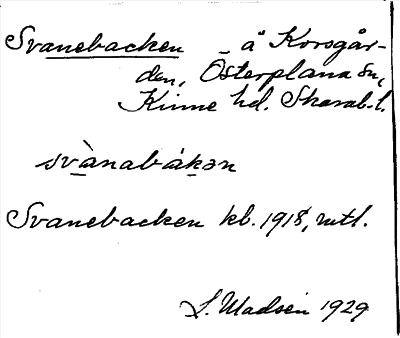 Svanebacken – å Korsgår-
den, Österplana sn,
Kinne hd. Skarab. l.
svànabákən
Svanebacken kb. 1918, mtl.
S. Madsén 1929